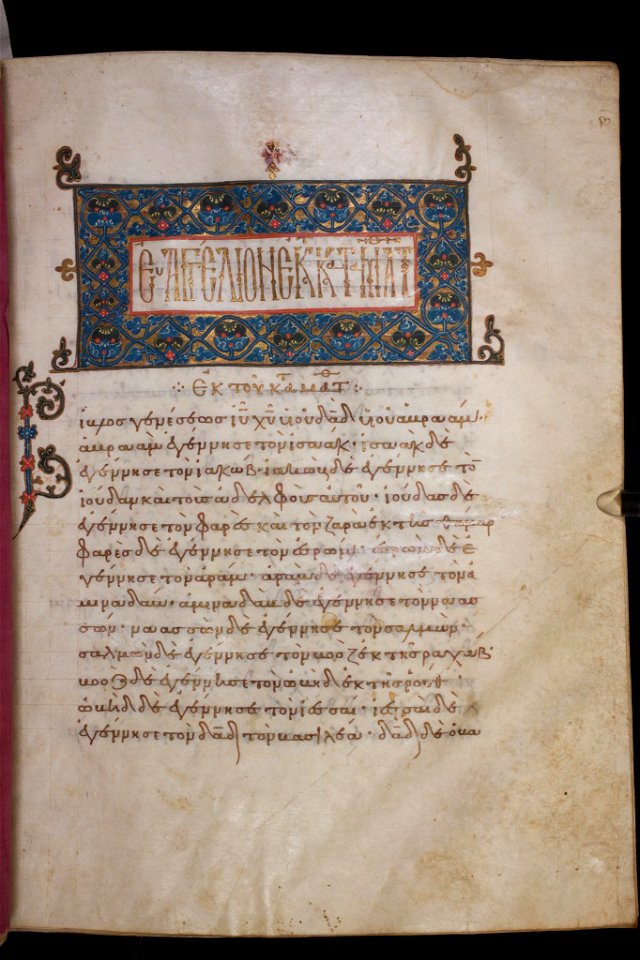 Εὐαγγέλιον ἐκ κτ Ματ
ἐκ τοῦ κτ Ματθ
ίβλος γενέσεως ἰῦ χῦ υἱοῦ δᾱδ υἱοῦ ἀβραάμ·
ἀβραὰμ ἐγέννησε τὸν ἰσαάκ· ἰσαὰκ δὲ
ἐγέννησε τὸν ἰακώβ· ἰακὼβ δὲ ἐγέννησε τὸ̄
ἰούδαν καὶ τοὺς ἀδελφοὺς αὐτοῦ· ἰούδας δὲ
ἐγέννησε τὸν φαρὲς καὶ τὸν ζαρὰ ἐκ τῆς θάμαρ
φαρὲς δὲ ἐγέννησε τὸν ἐσρώμ· ἐσρὼμ δὲ ἐ
γέννησε τὸν ἀράμ· ἀρὰμ δὲ ἐγέννησε τὸν ἀ
μιναδάμ· ἀμιναδὰμ δὲ ἐγέννησε τὸν ναασ
σών· ναασσὼν δὲ ἐγέννησε τὸν σαλμών·
σαλμὼν δὲ ἐγέννησε τὸν βοὸζ ἐκ τῆς ραχάβ·
βοὸζ δὲ ἐγέννησε τὸν ὠβὴδ ἐκ τῆς ρούθ·
ὠβὴδ δὲ ἐγέννησε τὸν ἰεσσαί· ἰεσσαὶ δὲ
ἐγέννησε τὸν δᾱδ τὸν βασιλέα· δᾱδ δὲ ὁ βα